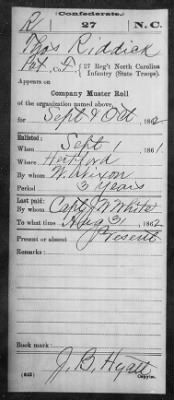 Confederate.
R 27 N.C.
Thos Riddick
Pvt, Co. F, 27 Reg't North Carolina
Infantry (State Troops).
Appears on
Company Muster Roll
of the organization named above,
for Sept & Oct, 1862
Enlisted:
When Sept 1, 1861
Where Hertford
By whom W. Nixon
Period 3 years
Last paid:
By whom Capt. J. W. White
To what time Aug 31, 1862
Present or absent Present
Remarks:
Book mark:
J. B. Hyatt
(642) Copyist.